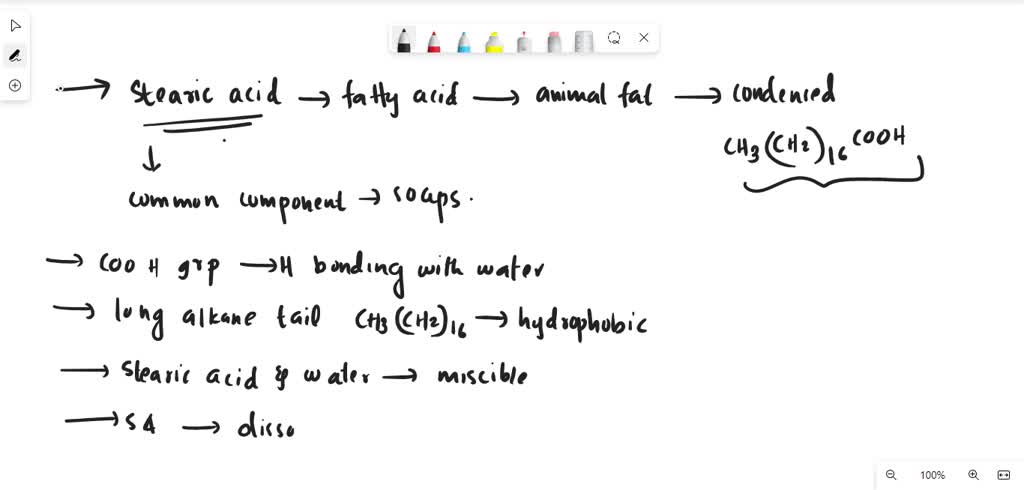 → stearic acid → fatty acid → animal fat → condenced
CH3(CH2)16 COOH
↓
common component → soaps.
→ COOH grp → H bonding with water
→ long alkane tail CH3(CH2)16 → hydrophobic
→ stearic acid & water → miscible
→ SA → disso
100%